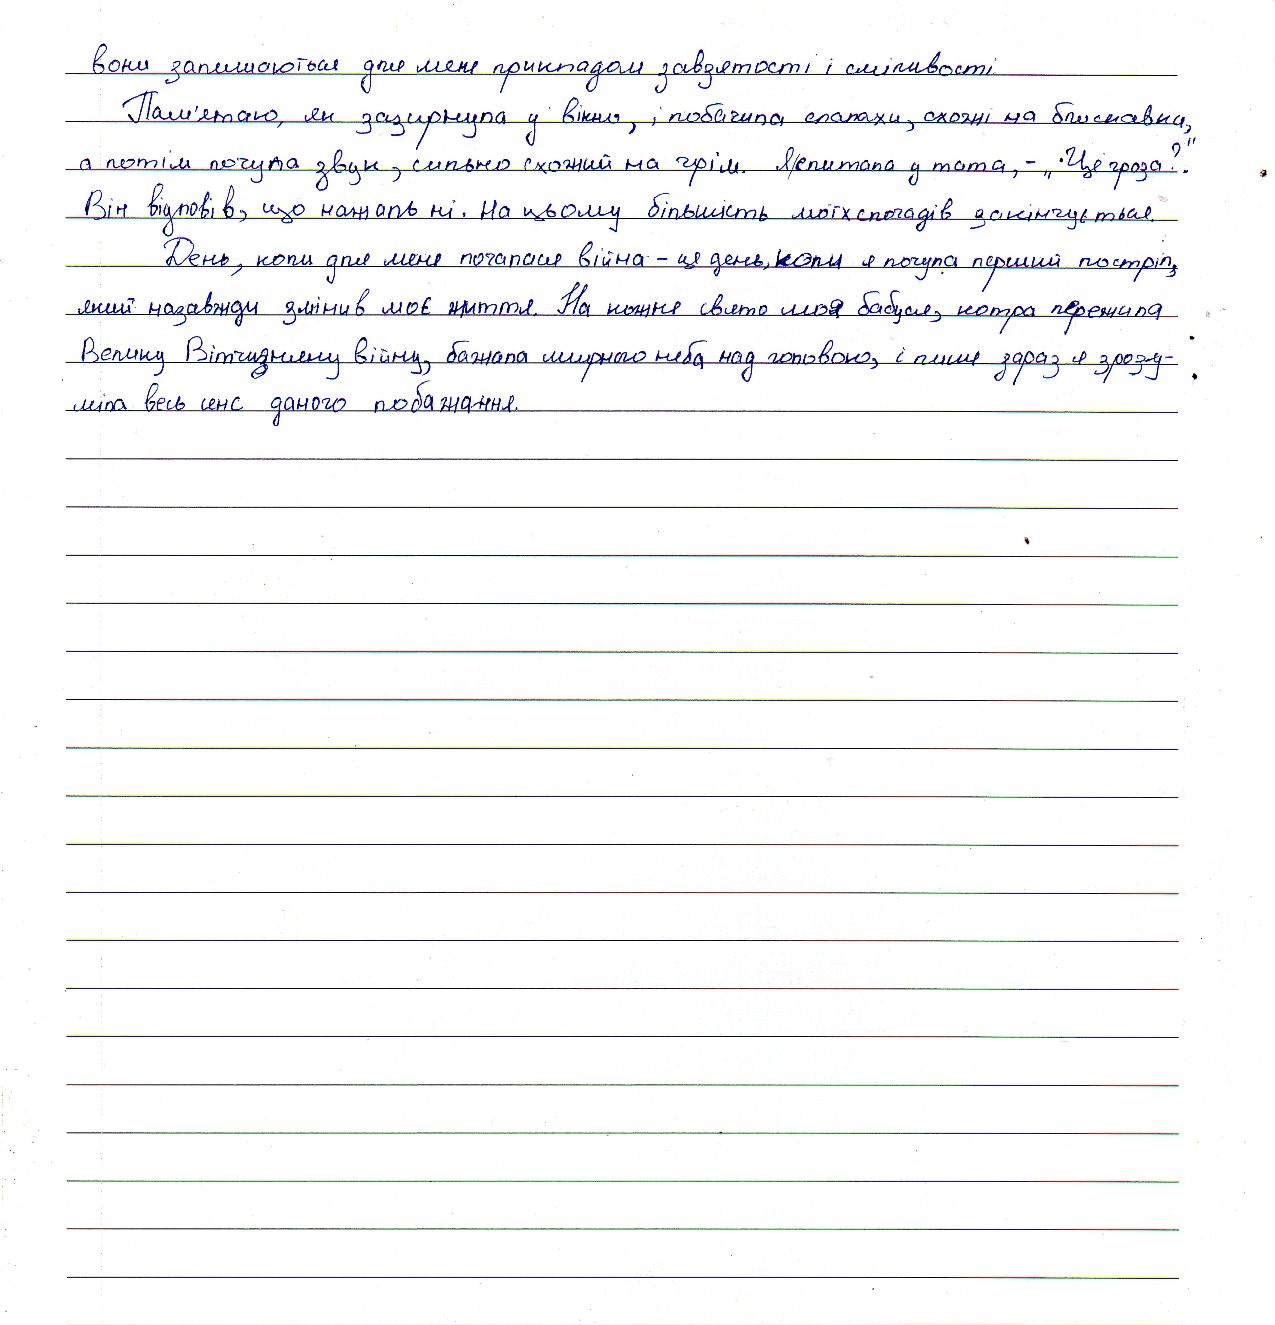 вони залишаються для мене прикладом завзятості і сміливості.
Пам'ятаю, як зазирнула у вікно, і побачила спалахи, схожі на блискавки,
а потім почула звук, сильно схожий на грім. Я спитала у тата, – „Це гроза?".
Він відповів, що нажаль ні. На цьому більшість моїх спогадів закінчується.
День, коли для мене почалася війна – це день, коли я почула перший постріл,
який назавжди змінив моє життя. На кожне свято моя бабуся, котра пережила
Велику Вітчизняну війну, бажала мирного неба над головою, і лише зараз я зрозу-
міла весь сенс даного побажання.